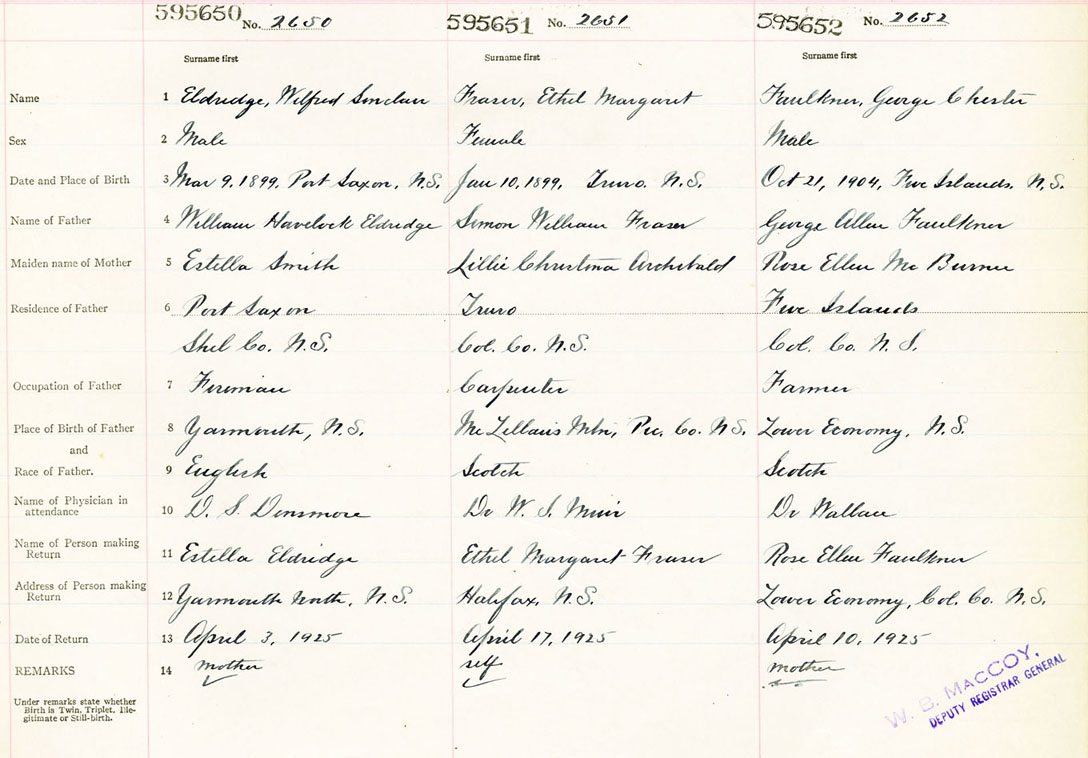 595650 No. 2650 595651 No. 2651 595652 No. 2652
Surname first Surname first Surname first
Name 1 Eldredge, Wilfred Sinclair Fraser, Ethel Margaret Faulkner, George Chester
Sex 2 Male Female Male
Date and Place of Birth 3 Mar 9, 1899, Port Saxon, N.S. Jan 10, 1899, Truro. N.S. Oct 21, 1904, Five Islands, N.S.
Name of Father 4 William Havelock Eldredge Simon William Fraser George Allen Faulkner
Maiden name of Mother 5 Estella Smith Lillie Christina Archibald Rose Ellen Mc Burnie
Residence of Father 6 Port Saxon Truro Five Islands
Shel Co. N.S. Col. Co. N.S. Col. Co. N.S.
Occupation of Father 7 Fireman Carpenter Farmer
Place of Birth of Father 8 Yarmouth, N.S. Mc Lellan's Mtn, Pic. Co. N.S. Lower Economy, N.S.
and
Race of Father. 9 English Scotch Scotch
Name of Physician in
attendance 10 D. S. Densmore Dr W. S. Muir Dr Wallace
Name of Person making
Return 11 Estella Eldridge Ethel Margaret Fraser Rose Ellen Faulkner
Address of Person making
Return 12 Yarmouth North, N.S. Halifax, N.S. Lower Economy, Col. Co. N.S.
Date of Return 13 April 3, 1925 April 17, 1925 April 10, 1925
REMARKS 14 mother self mother
Under remarks state whether
Birth is Twin, Triplet, Ille-
gitimate or Still-birth.
W. B. MACCOY,
DEPUTY REGISTRAR GENERAL